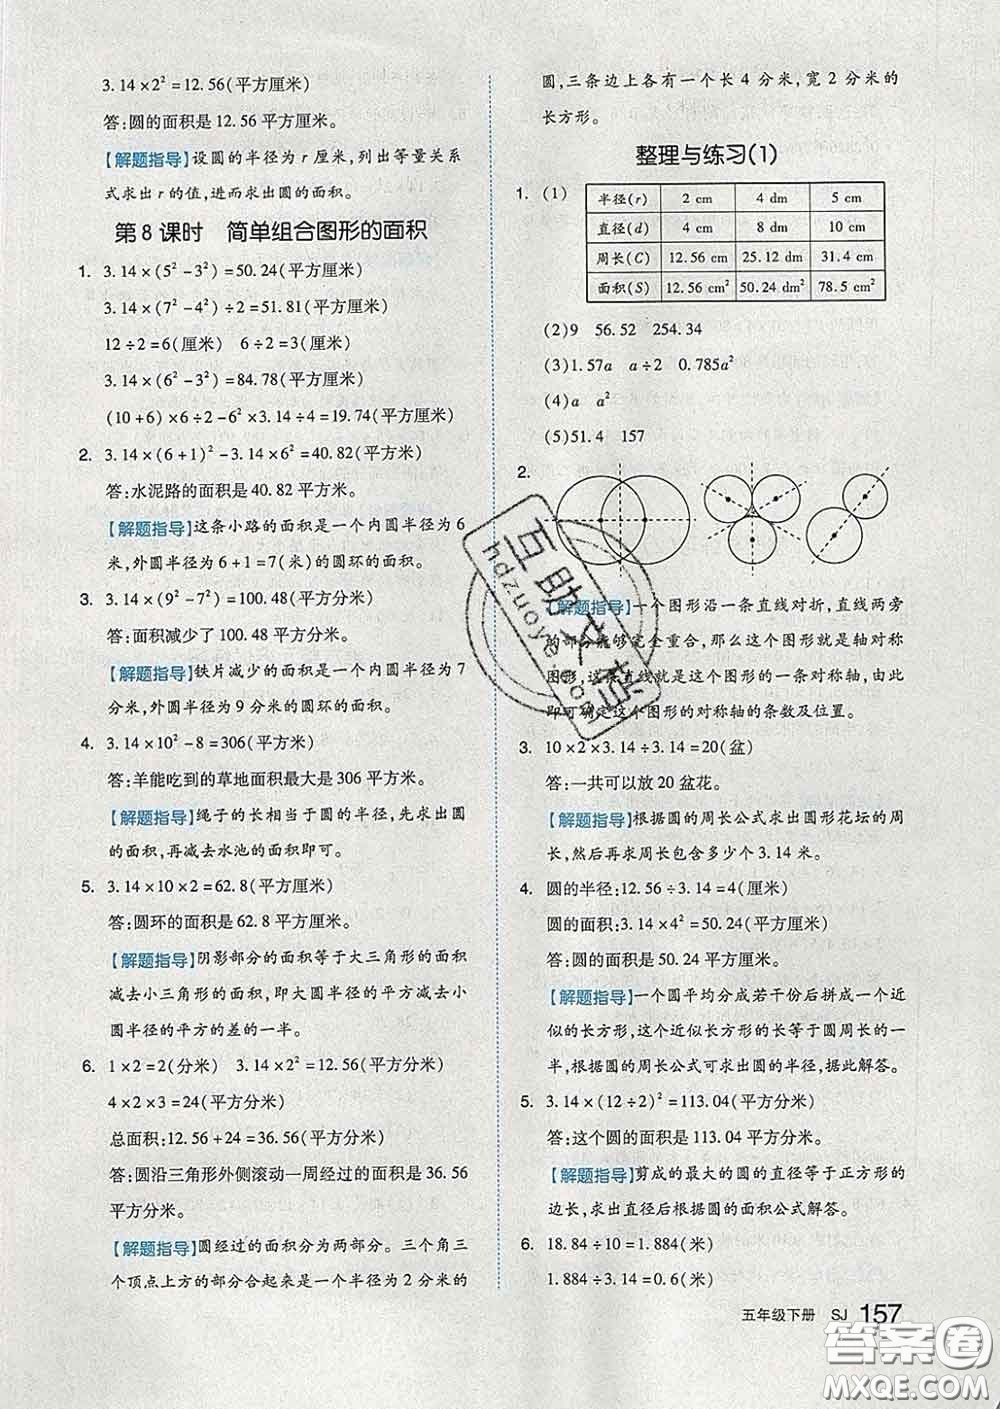 3.14×2²=12.56(平方厘米)
答:圆的面积是 12.56 平方厘米。
【解题指导】设圆的半径为 r 厘米,列出等量关系
式求出 r 的值,进而求出圆的面积。
第 8 课时 简单组合图形的面积
1. 3.14×(5²-3²)=50.24(平方厘米)
3.14×(7²-4²)÷2=51.81(平方厘米)
12÷2=6(厘米) 6÷2=3(厘米)
3.14×(6²-3²)=84.78(平方厘米)
(10+6)×6÷2-6²×3.14÷4=19.74(平方厘米)
2. 3.14×(6+1)²-3.14×6²=40.82(平方米)
答:水泥路的面积是 40.82 平方米。
【解题指导】这条小路的面积是一个内圆半径为 6
米,外圆半径为 6+1=7(米)的圆环的面积。
3. 3.14×(9²-7²)=100.48(平方分米)
答:面积减少了 100.48 平方分米。
【解题指导】铁片减少的面积是一个内圆半径为 7
分米,外圆半径为 9 分米的圆环的面积。
4. 3.14×10²-8=306(平方米)
答:羊能吃到的草地面积最大是 306 平方米。
【解题指导】绳子的长相当于圆的半径,先求出圆
的面积,再减去水池的面积即可。
5. 3.14×10×2=62.8(平方厘米)
答:圆环的面积是 62.8 平方厘米。
【解题指导】阴影部分的面积等于大三角形的面积
减去小三角形的面积,即大圆半径的平方减去小
圆半径的平方的差的一半。
6. 1×2=2(分米) 3.14×2²=12.56(平方分米)
4×2×3=24(平方分米)
总面积:12.56+24=36.56(平方分米)
答:圆沿三角形外侧滚动一周经过的面积是 36.56
平方分米。
【解题指导】圆经过的面积分为两部分。三个角三
个顶点上方的部分合起来是一个半径为 2 分米的
圆,三条边上各有一个长 4 分米,宽 2 分米的
长方形。
整理与练习(1)
1. (1) 半径(r) 2 cm 4 dm 5 cm
直径(d) 4 cm 8 dm 10 cm
周长(C) 12.56 cm 25.12 dm 31.4 cm
面积(S) 12.56 cm² 50.24 dm² 78.5 cm²
(2)9 56.52 254.34
(3)1.57a a÷2 0.785a²
(4)a a²
(5)51.4 157
2.
【解题指导】一个图形沿一条直线对折,直线两旁
的部分能够完全重合,那么这个图形就是轴对称
图形,这条直线就是这个图形的一条对称轴,由此
即可确定这个图形的对称轴的条数及位置。
3. 10×2×3.14÷3.14=20(盆)
答:一共可以放 20 盆花。
【解题指导】根据圆的周长公式求出圆形花坛的周
长,然后再求周长包含多少个 3.14 米。
4. 圆的半径:12.56÷3.14=4(厘米)
圆的面积:3.14×4²=50.24(平方厘米)
答:圆的面积是 50.24 平方厘米。
【解题指导】一个圆平均分成若干份后拼成一个近
似的长方形,这个近似长方形的长等于圆周长的一
半,根据圆的周长公式可求出圆的半径,据此解答。
5. 3.14×(12÷2)²=113.04(平方厘米)
答:这个圆的面积是 113.04 平方厘米。
【解题指导】剪成的最大的圆的直径等于正方形的
边长,求出直径后根据圆的面积公式解答。
6. 18.84÷10=1.884(米)
1.884÷3.14=0.6(米)
五年级下册 SJ 157
互助文档
hdzuoye.com
答案圈
MXQE.COM